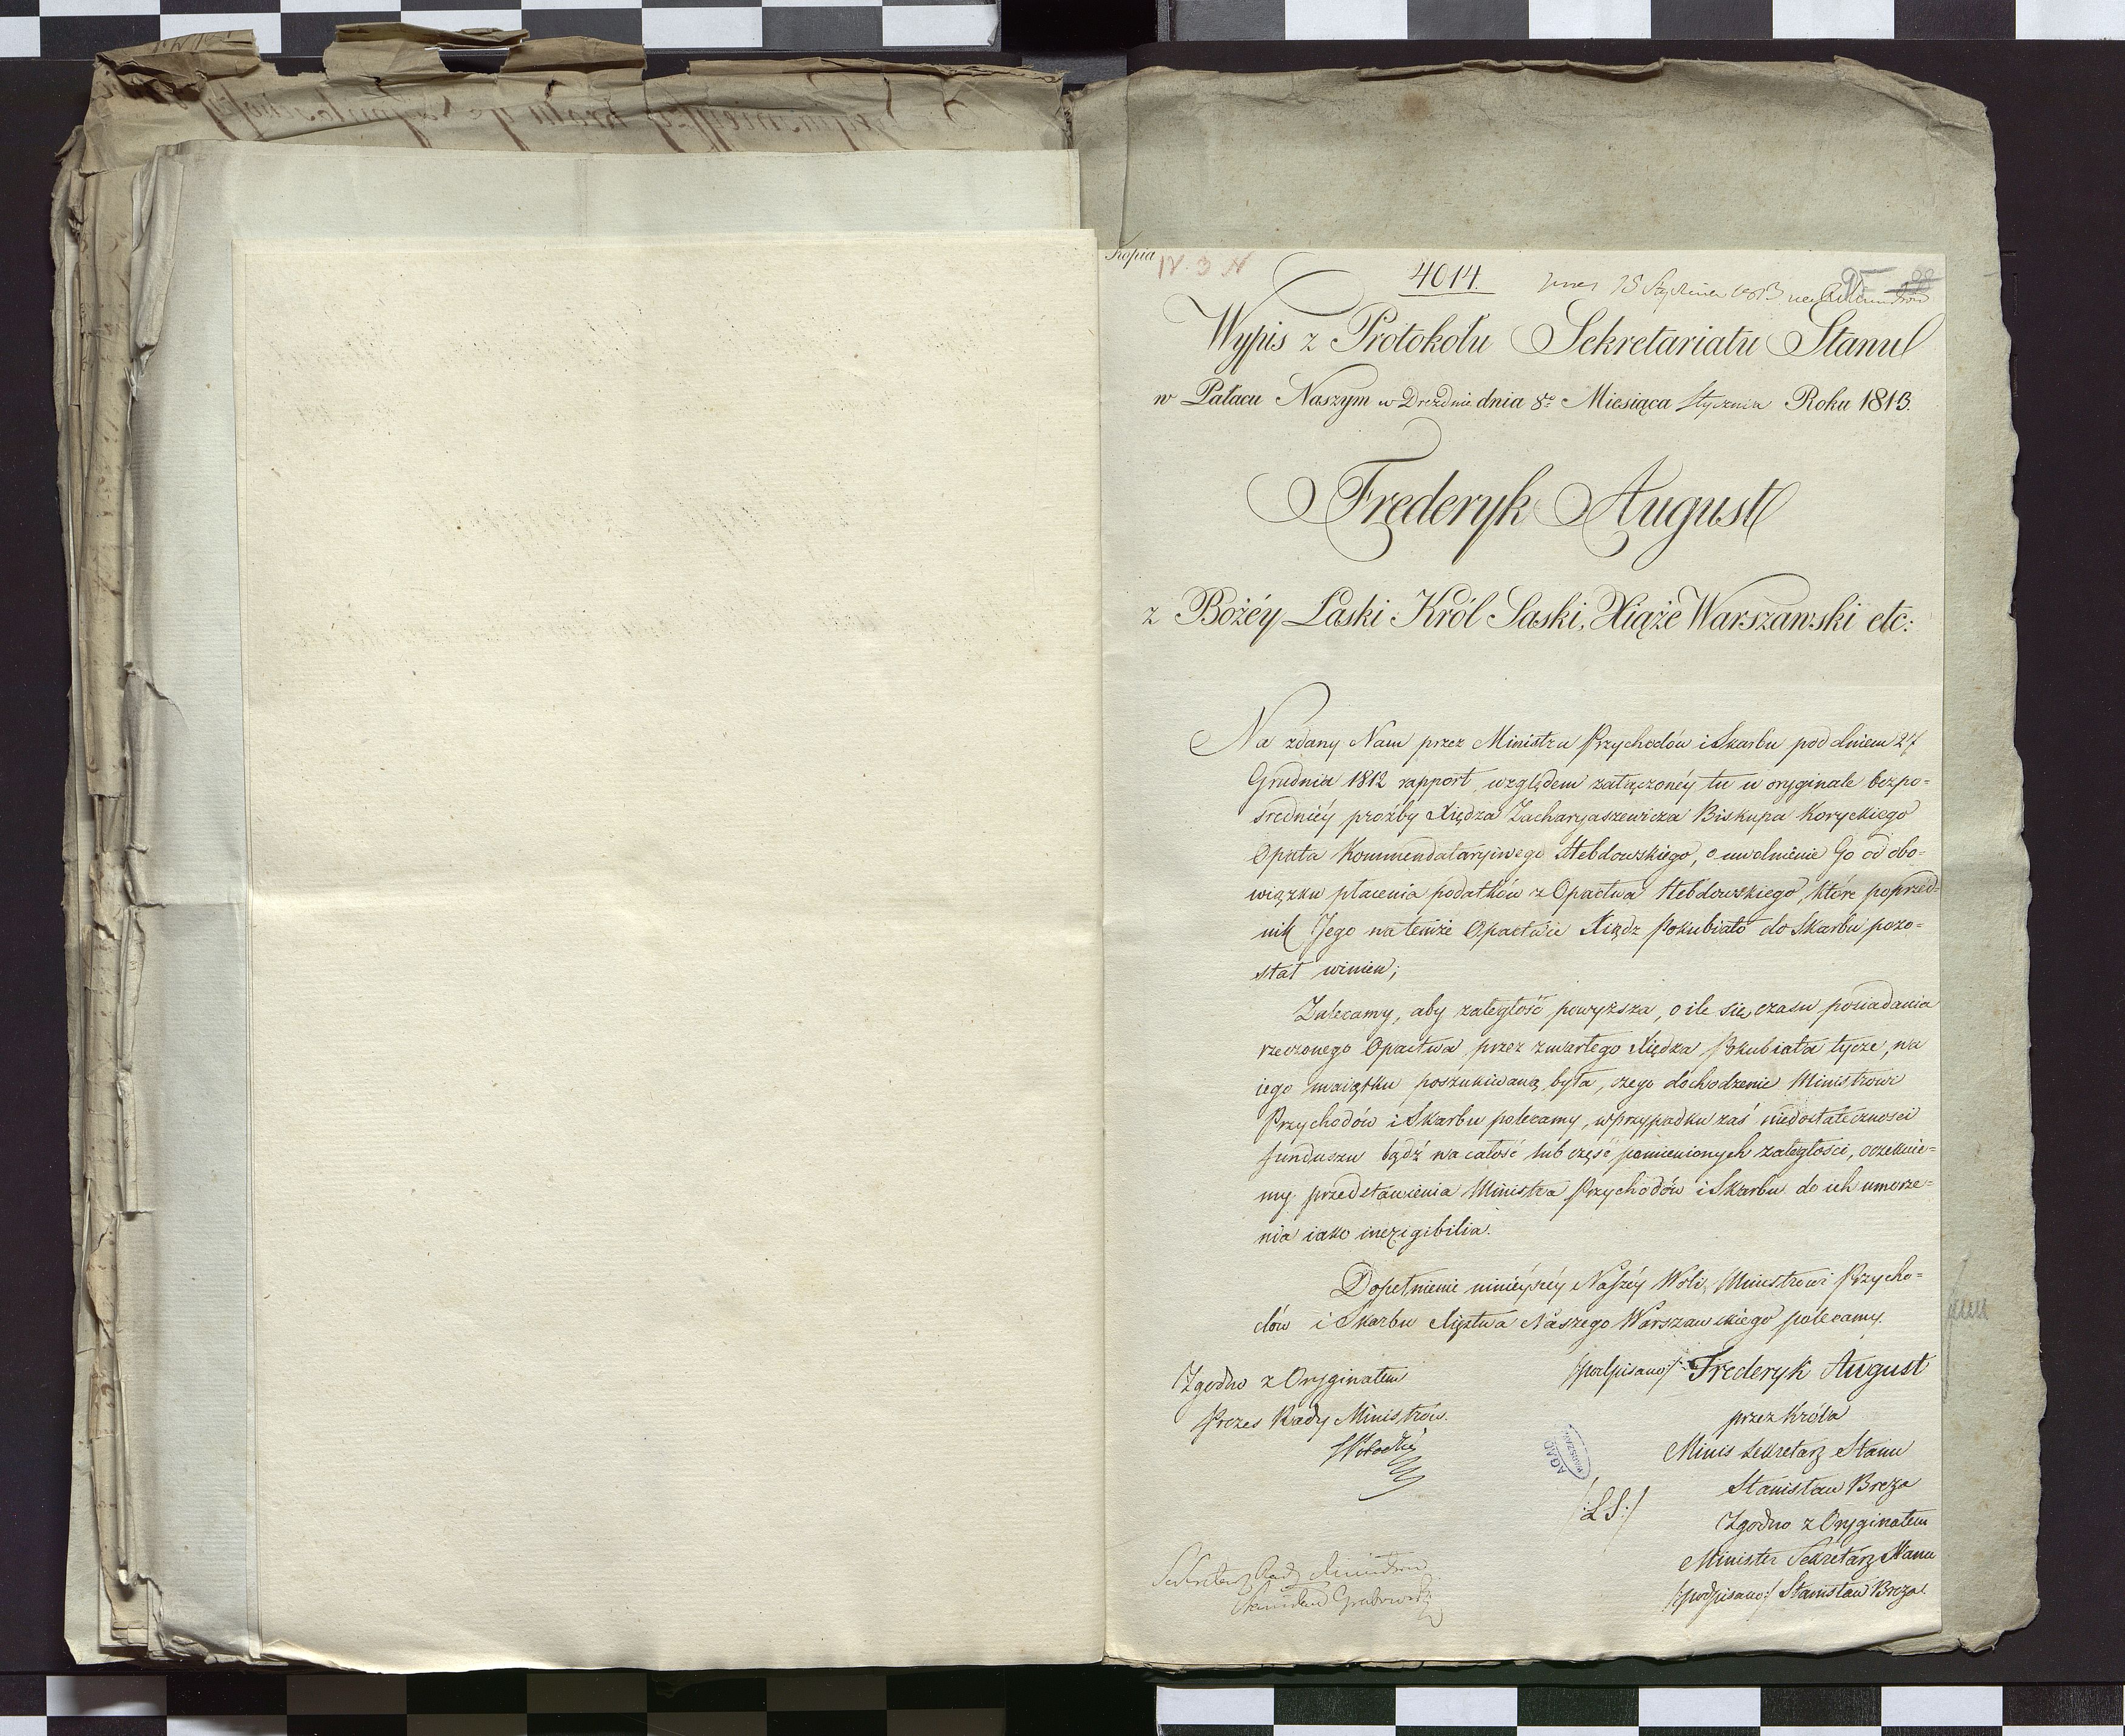 Kopia
IV. 3 N
4014.
18 Stycznia 1813
Wypis z Protokołu Sekretariatu Stanu
w Pałacu Naszym w Dreznie dnia 8º Miesiąca Stycznia Roku 1813.
Frederyk August
z Bożéy Łaski Król Saski, Xiąże Warszawski etc:
Na zdany Nam przez Ministra Przychodów i Skarbu pod dniem 24
Grudnia 1812 rapport, względem załączonéy tu w oryginale bezpo-
średniéy proźby Xiędza Zacharyaszewicza Biskupa Koryckiego
Opata Kommendataryinego Hebdowskiego, o uwolnienie Go od obo-
wiązku płacenia podatków z Opactwa Hebdowskiego, które poprzed-
nik Jego na temże Opactwie Xiądz Pokubiato do Skarbu pozo-
stał winien;
Zalecamy, aby zaległość powyższa, o ile się czasu posiadania
rzeczonego Opactwa przez zmarłego Xiędza Pokubiata tycze, na
iego maiątku poszukiwaną była, czego dochodzenie Ministrowi
Przychodów i Skarbu polecamy, w przypadku zaś niedostateczności
funduszu bądź na całość lub część pomienionych zaległości, oczekuie-
my przedstawienia Ministra Przychodów i Skarbu do ich umorze-
nia iako inexigibilia.
Dopełnienie ninieyszéy Naszéy Woli, Ministrowi Przycho-
dów i Skarbu Xięstwa Naszego Warszawskiego polecamy.
Zgodno z Oryginałem
Prezes Rady Ministrów.
/:podpisano:/ Frederyk August
przez Króla
Minis Sekretarz Stanu
Stanisław Breza
/:LS:/
Zgodno z Oryginałem
Minister Sekretarz Stanu
/:podpisano:/ Stanisław Breza.
Sekretarz Rady Ministrów
Stanisław Grabowski
AGAD
WARSZAWA